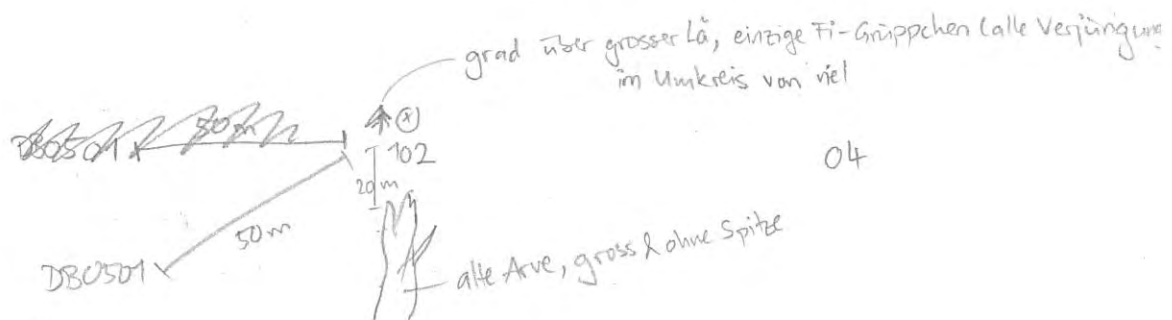 grad über grosser Lä, einzige Fi-Grüppchen (alle Verjüngung
im Umkreis von viel
DB0501 50m
102
04
20m
50m
DB0501
alte Arve, gross & ohne Spitze